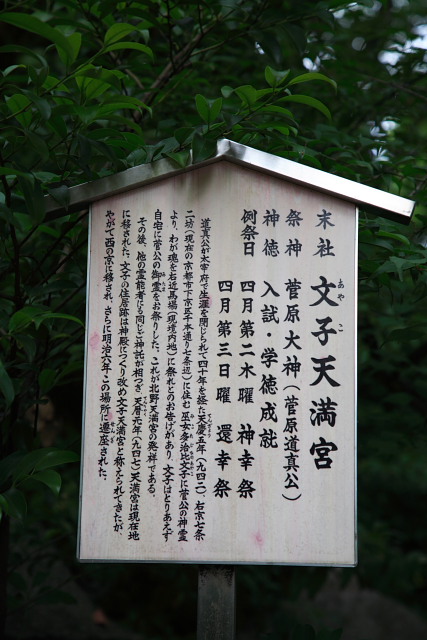 末社 文子天満宮
あやこ
祭神 菅原大神(菅原道真公)
神徳 入試・学徳成就
例祭日 四月第二木曜 神幸祭
四月第三日曜 還幸祭
道真公が太宰府で生涯を閉じられて四十年を経た天慶五年(九四二)、右京七条
二坊(現在の京都市下京区千本通り七条辺)に住む巫女多治比文子に菅公の神霊
より、わが魂を右近馬場(現境内地)に祭れとのお告げがあり、文子はとりあえず
自宅に菅公の御霊をお祭りした。これが北野天満宮の発祥である。
その後、他の霊能者にも同じご神託が相つぎ、天暦元年(九四七)天満宮は現在地
に移された。文子の住居跡は神殿につくり改め文子天満宮と称えられてきたが、
やがて西の京に移され、さらに明治六年この場所に遷座された。